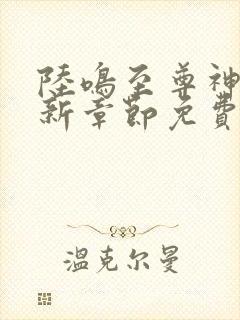 陸鳴至尊神
新章節免費
溫克尔曼